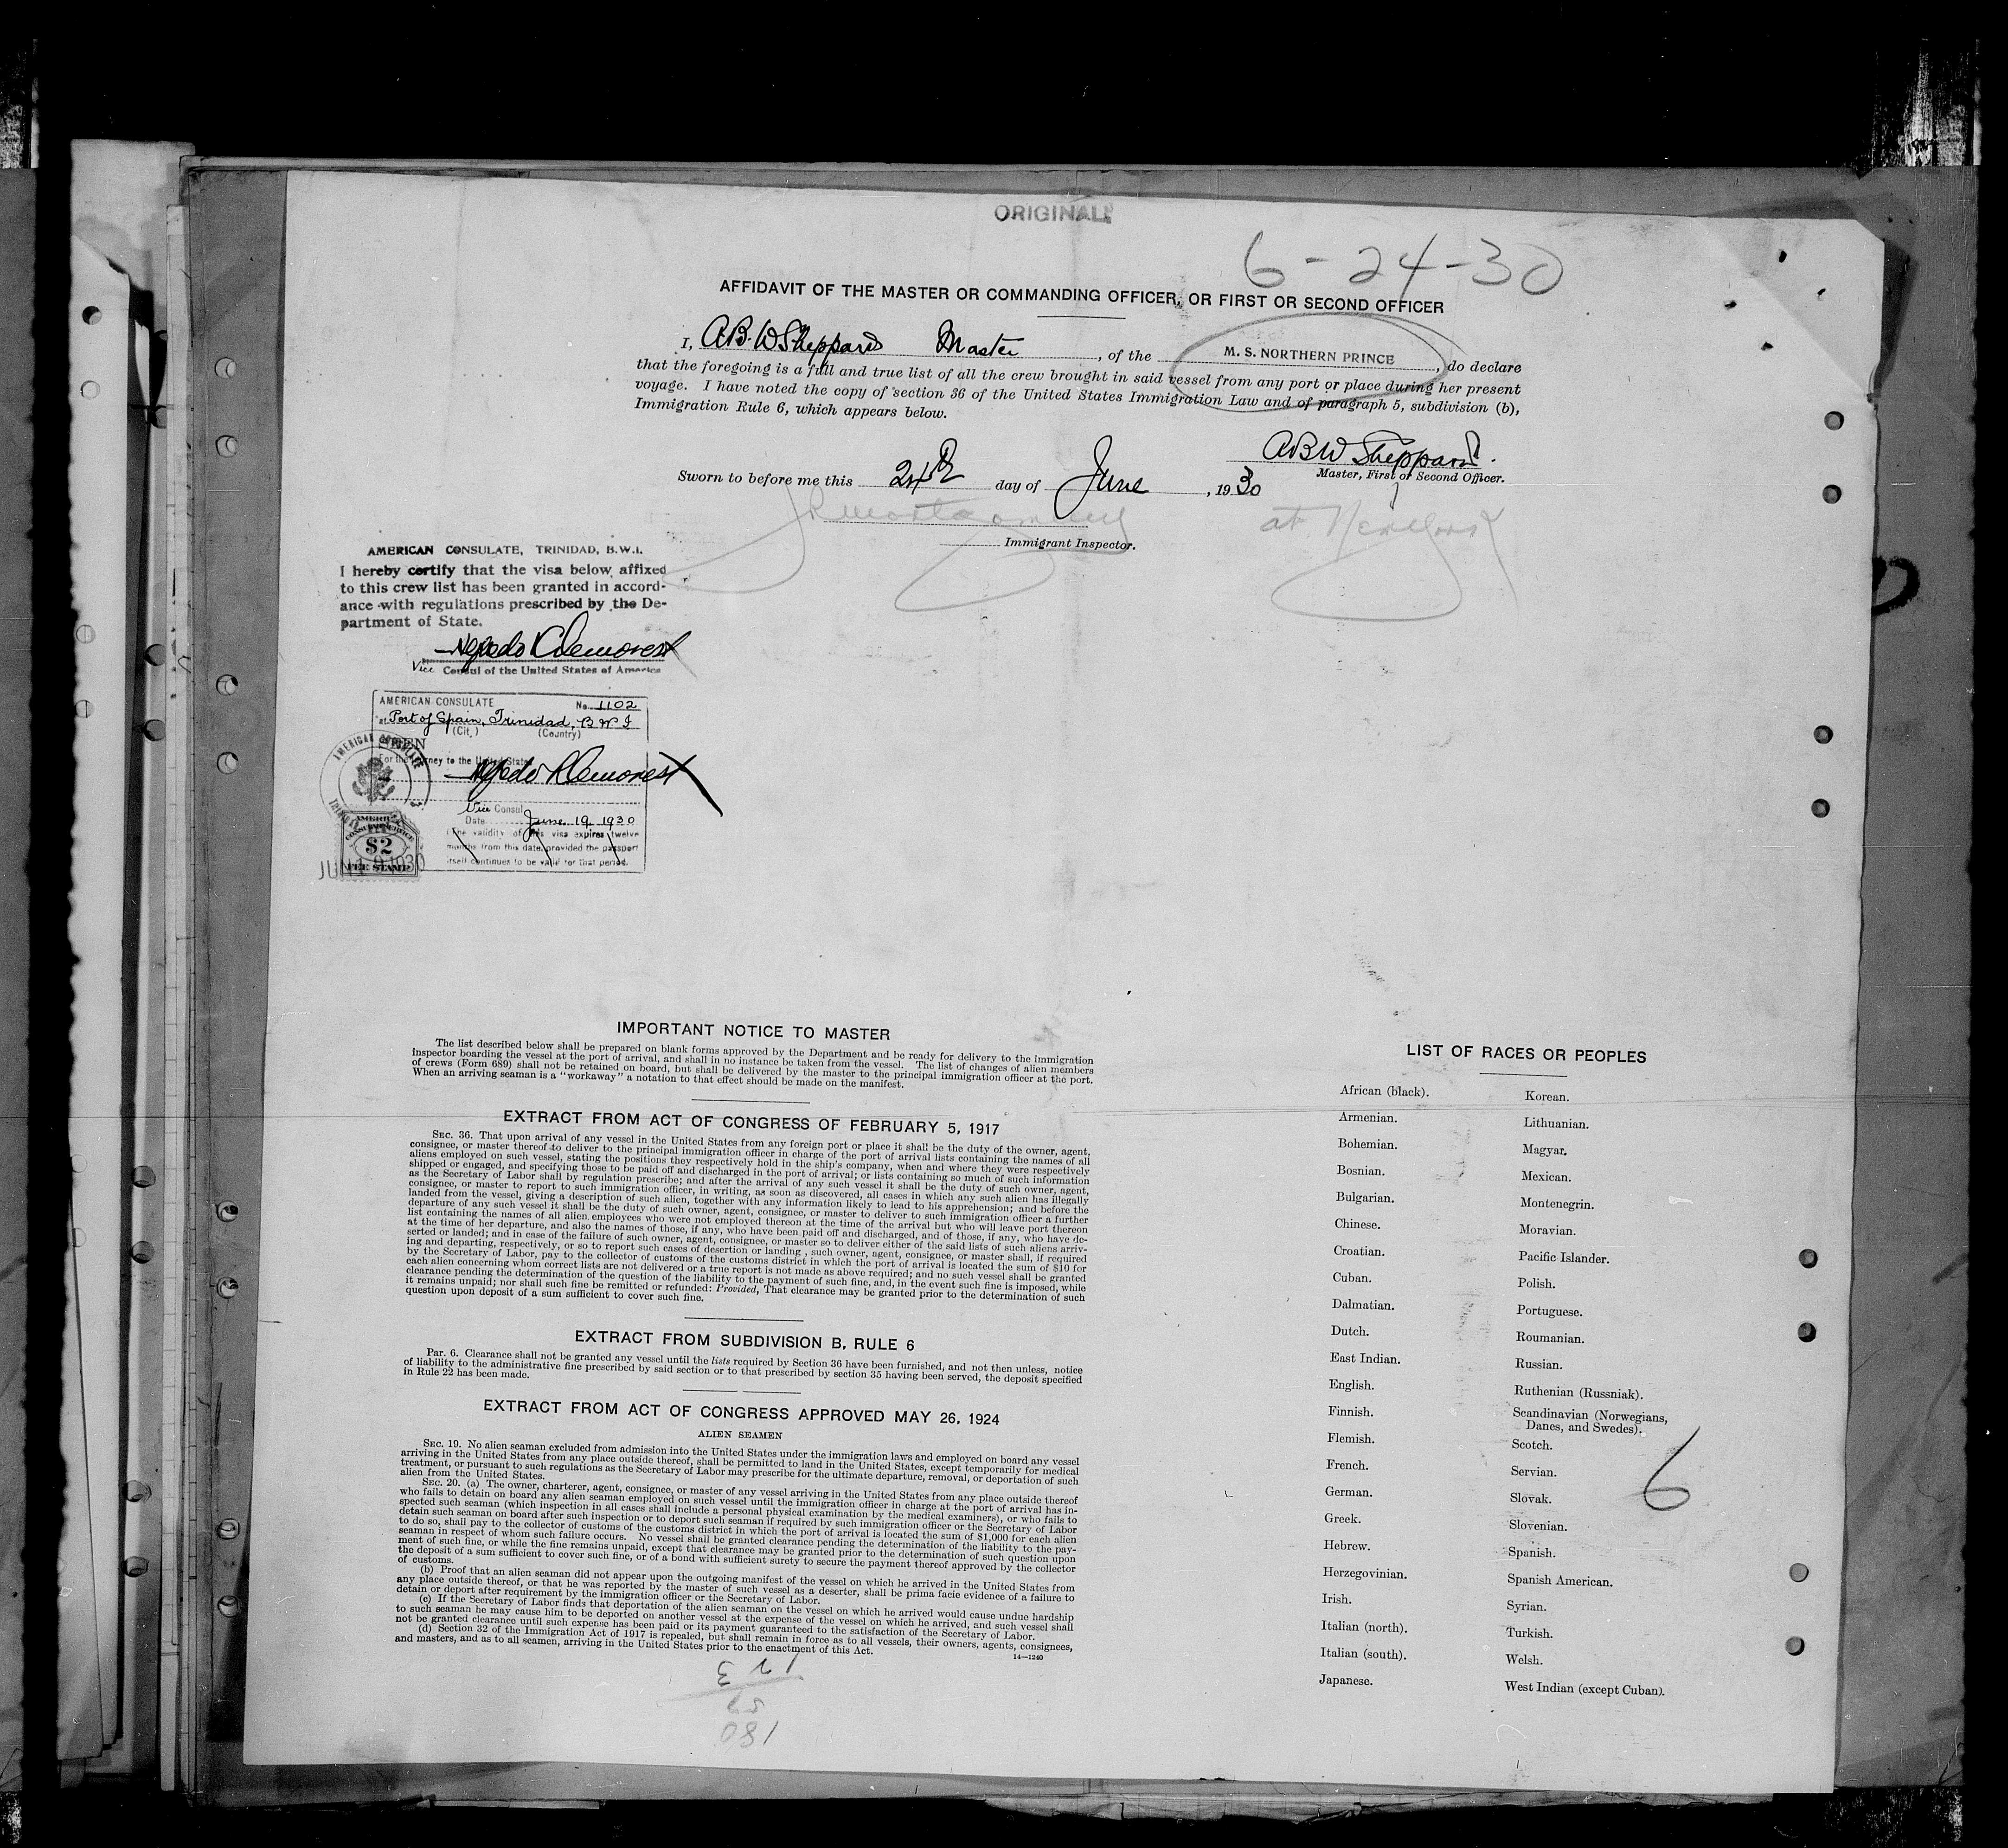 ORIGINAL
6-24-30
AFFIDAVIT OF THE MASTER OR COMMANDING OFFICER, OR FIRST OR SECOND OFFICER
I, A.B.W. Sheppard Master, of the M. S. NORTHERN PRINCE, do declare
that the foregoing is a full and true list of all the crew brought in said vessel from any port or place during her present
voyage. I have noted the copy of section 36 of the United States Immigration Law and of paragraph 5, subdivision (b),
Immigration Rule 6, which appears below.
ABW Sheppard.
Master, First or Second Officer.
Sworn to before me this 24th day of June, 1930
at New York
Immigrant Inspector.
AMERICAN CONSULATE, TRINIDAD, B.W.I.
I hereby certify that the visa below affixed
to this crew list has been granted in accord-
ance with regulations prescribed by the De-
partment of State.
Vice Consul of the United States of America
AMERICAN CONSULATE No. 1102
at Port of Spain, Trinidad, B W I
(City) (Country)
SEEN
For the journey to the United States
Vice Consul
Date June 19 1930
(The validity of this visa expires twelve
months from this date, provided the passport
itself continues to be valid for that period.
AMERICAN CONSULATE
$2
FEE STAMP
JUN 19 1930
IMPORTANT NOTICE TO MASTER
The list described below shall be prepared on blank forms approved by the Department and be ready for delivery to the immigration
inspector boarding the vessel at the port of arrival, and shall in no instance be taken from the vessel. The list of changes of alien members
of crews (Form 689) shall not be retained on board, but shall be delivered by the master to the principal immigration officer at the port.
When an arriving seaman is a "workaway" a notation to that effect should be made on the manifest.
EXTRACT FROM ACT OF CONGRESS OF FEBRUARY 5, 1917
SEC. 36. That upon arrival of any vessel in the United States from any foreign port or place it shall be the duty of the owner, agent,
consignee, or master thereof to deliver to the principal immigration officer in charge of the port of arrival lists containing the names of all
aliens employed on such vessel, stating the positions they respectively hold in the ship's company, when and where they were respectively
shipped or engaged, and specifying those to be paid off and discharged in the port of arrival; or lists containing so much of such information
as the Secretary of Labor shall by regulation prescribe; and after the arrival of any such vessel it shall be the duty of such owner, agent,
consignee, or master to report to such immigration officer, in writing, as soon as discovered, all cases in which any such alien has illegally
landed from the vessel, giving a description of such alien, together with any information likely to lead to his apprehension; and before the
departure of any such vessel it shall be the duty of such owner, agent, consignee, or master to deliver to such immigration officer a further
list containing the names of all alien employees who were not employed thereon at the time of the arrival but who will leave port thereon
at the time of her departure, and also the names of those, if any, who have been paid off and discharged, and of those, if any, who have de-
serted or landed; and in case of the failure of such owner, agent, consignee, or master so to deliver either of the said lists of such aliens arriv-
ing and departing, respectively, or so to report such cases of desertion or landing, such owner, agent, consignee, or master shall, if required
by the Secretary of Labor, pay to the collector of customs of the customs district in which the port of arrival is located the sum of $10 for
each alien concerning whom correct lists are not delivered or a true report is not made as above required; and no such vessel shall be granted
clearance pending the determination of the question of the liability to the payment of such fine, and, in the event such fine is imposed, while
it remains unpaid; nor shall such fine be remitted or refunded: Provided, That clearance may be granted prior to the determination of such
question upon deposit of a sum sufficient to cover such fine.
EXTRACT FROM SUBDIVISION B, RULE 6
Par. 6. Clearance shall not be granted any vessel until the lists required by Section 36 have been furnished, and not then unless, notice
of liability to the administrative fine prescribed by said section or to that prescribed by section 35 having been served, the deposit specified
in Rule 22 has been made.
EXTRACT FROM ACT OF CONGRESS APPROVED MAY 26, 1924
ALIEN SEAMEN
SEC. 19. No alien seaman excluded from admission into the United States under the immigration laws and employed on board any vessel
arriving in the United States from any place outside thereof, shall be permitted to land in the United States, except temporarily for medical
treatment, or pursuant to such regulations as the Secretary of Labor may prescribe for the ultimate departure, removal, or deportation of such
alien from the United States.
SEC. 20. (a) The owner, charterer, agent, consignee, or master of any vessel arriving in the United States from any place outside thereof
who fails to detain on board any alien seaman employed on such vessel until the immigration officer in charge at the port of arrival has in-
spected such seaman (which inspection in all cases shall include a personal physical examination by the medical examiners), or who fails to
detain such seaman on board after such inspection or to deport such seaman if required by such immigration officer or the Secretary of Labor
to do so, shall pay to the collector of customs of the customs district in which the port of arrival is located the sum of $1,000 for each alien
seaman in respect of whom such failure occurs. No vessel shall be granted clearance pending the determination of the liability to the pay-
ment of such fine, or while the fine remains unpaid, except that clearance may be granted prior to the determination of such question upon
the deposit of a sum sufficient to cover such fine, or of a bond with sufficient surety to secure the payment thereof approved by the collector
of customs.
(b) Proof that an alien seaman did not appear upon the outgoing manifest of the vessel on which he arrived in the United States from
any place outside thereof, or that he was reported by the master of such vessel as a deserter, shall be prima facie evidence of a failure to
detain or deport after requirement by the immigration officer or the Secretary of Labor.
(c) If the Secretary of Labor finds that deportation of the alien seaman on the vessel on which he arrived would cause undue hardship
to such seaman he may cause him to be deported on another vessel at the expense of the vessel on which he arrived, and such vessel shall
not be granted clearance until such expense has been paid or its payment guaranteed to the satisfaction of the Secretary of Labor.
(d) Section 32 of the Immigration Act of 1917 is repealed, but shall remain in force as to all vessels, their owners, agents, consignees,
and masters, and as to all seamen, arriving in the United States prior to the enactment of this Act.
14—1240
180
57
123
LIST OF RACES OR PEOPLES
African (black).
Armenian.
Bohemian.
Bosnian.
Bulgarian.
Chinese.
Croatian.
Cuban.
Dalmatian.
Dutch.
East Indian.
English.
Finnish.
Flemish.
French.
German.
Greek.
Hebrew.
Herzegovinian.
Irish.
Italian (north).
Italian (south).
Japanese.
Korean.
Lithuanian.
Magyar.
Mexican.
Montenegrin.
Moravian.
Pacific Islander.
Polish.
Portuguese.
Roumanian.
Russian.
Ruthenian (Russniak).
Scandinavian (Norwegians,
Danes, and Swedes).
Scotch.
Servian.
Slovak.
Slovenian.
Spanish.
Spanish American.
Syrian.
Turkish.
Welsh.
West Indian (except Cuban).
6